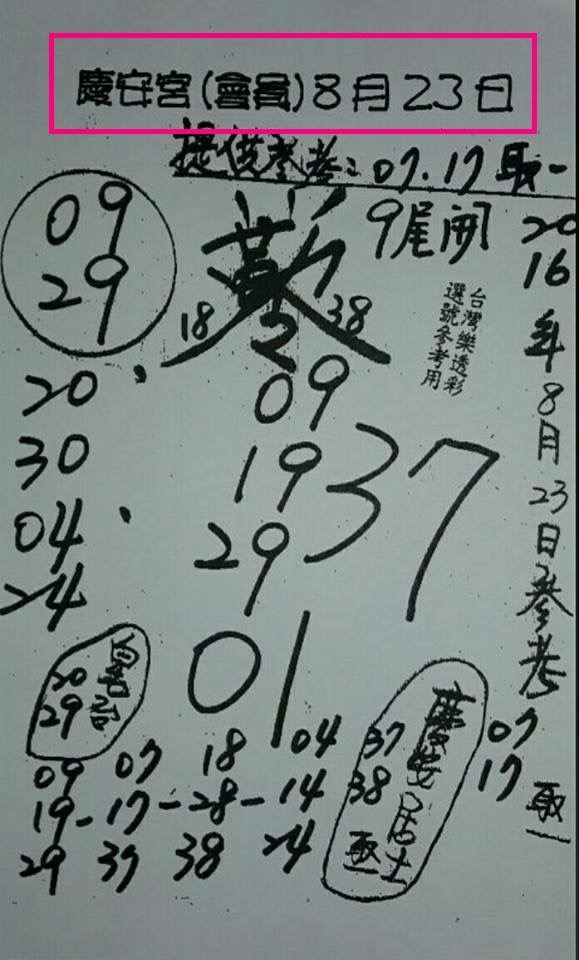 慶安宮(會員)8月23日
提供參考:07.17取一
9尾開
09
29
18
38
台灣樂透彩
選號參考用
2016年8月23日參考
20
30
04
24
09
19
29
37
01
20
29
慶安居士
37
38
取一
07
17
取一
09 07 18 04
19-17-28-14
29 37 38 24